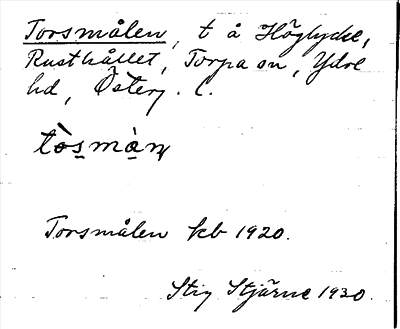 Torsmålen, t å Höglycke,
Rusthållet, Torpa sn, Ydre
hd, Österg. l.
tòs̠mà̠n̥
Torsmålen kb 1920.
Stig Stjärne 1930.